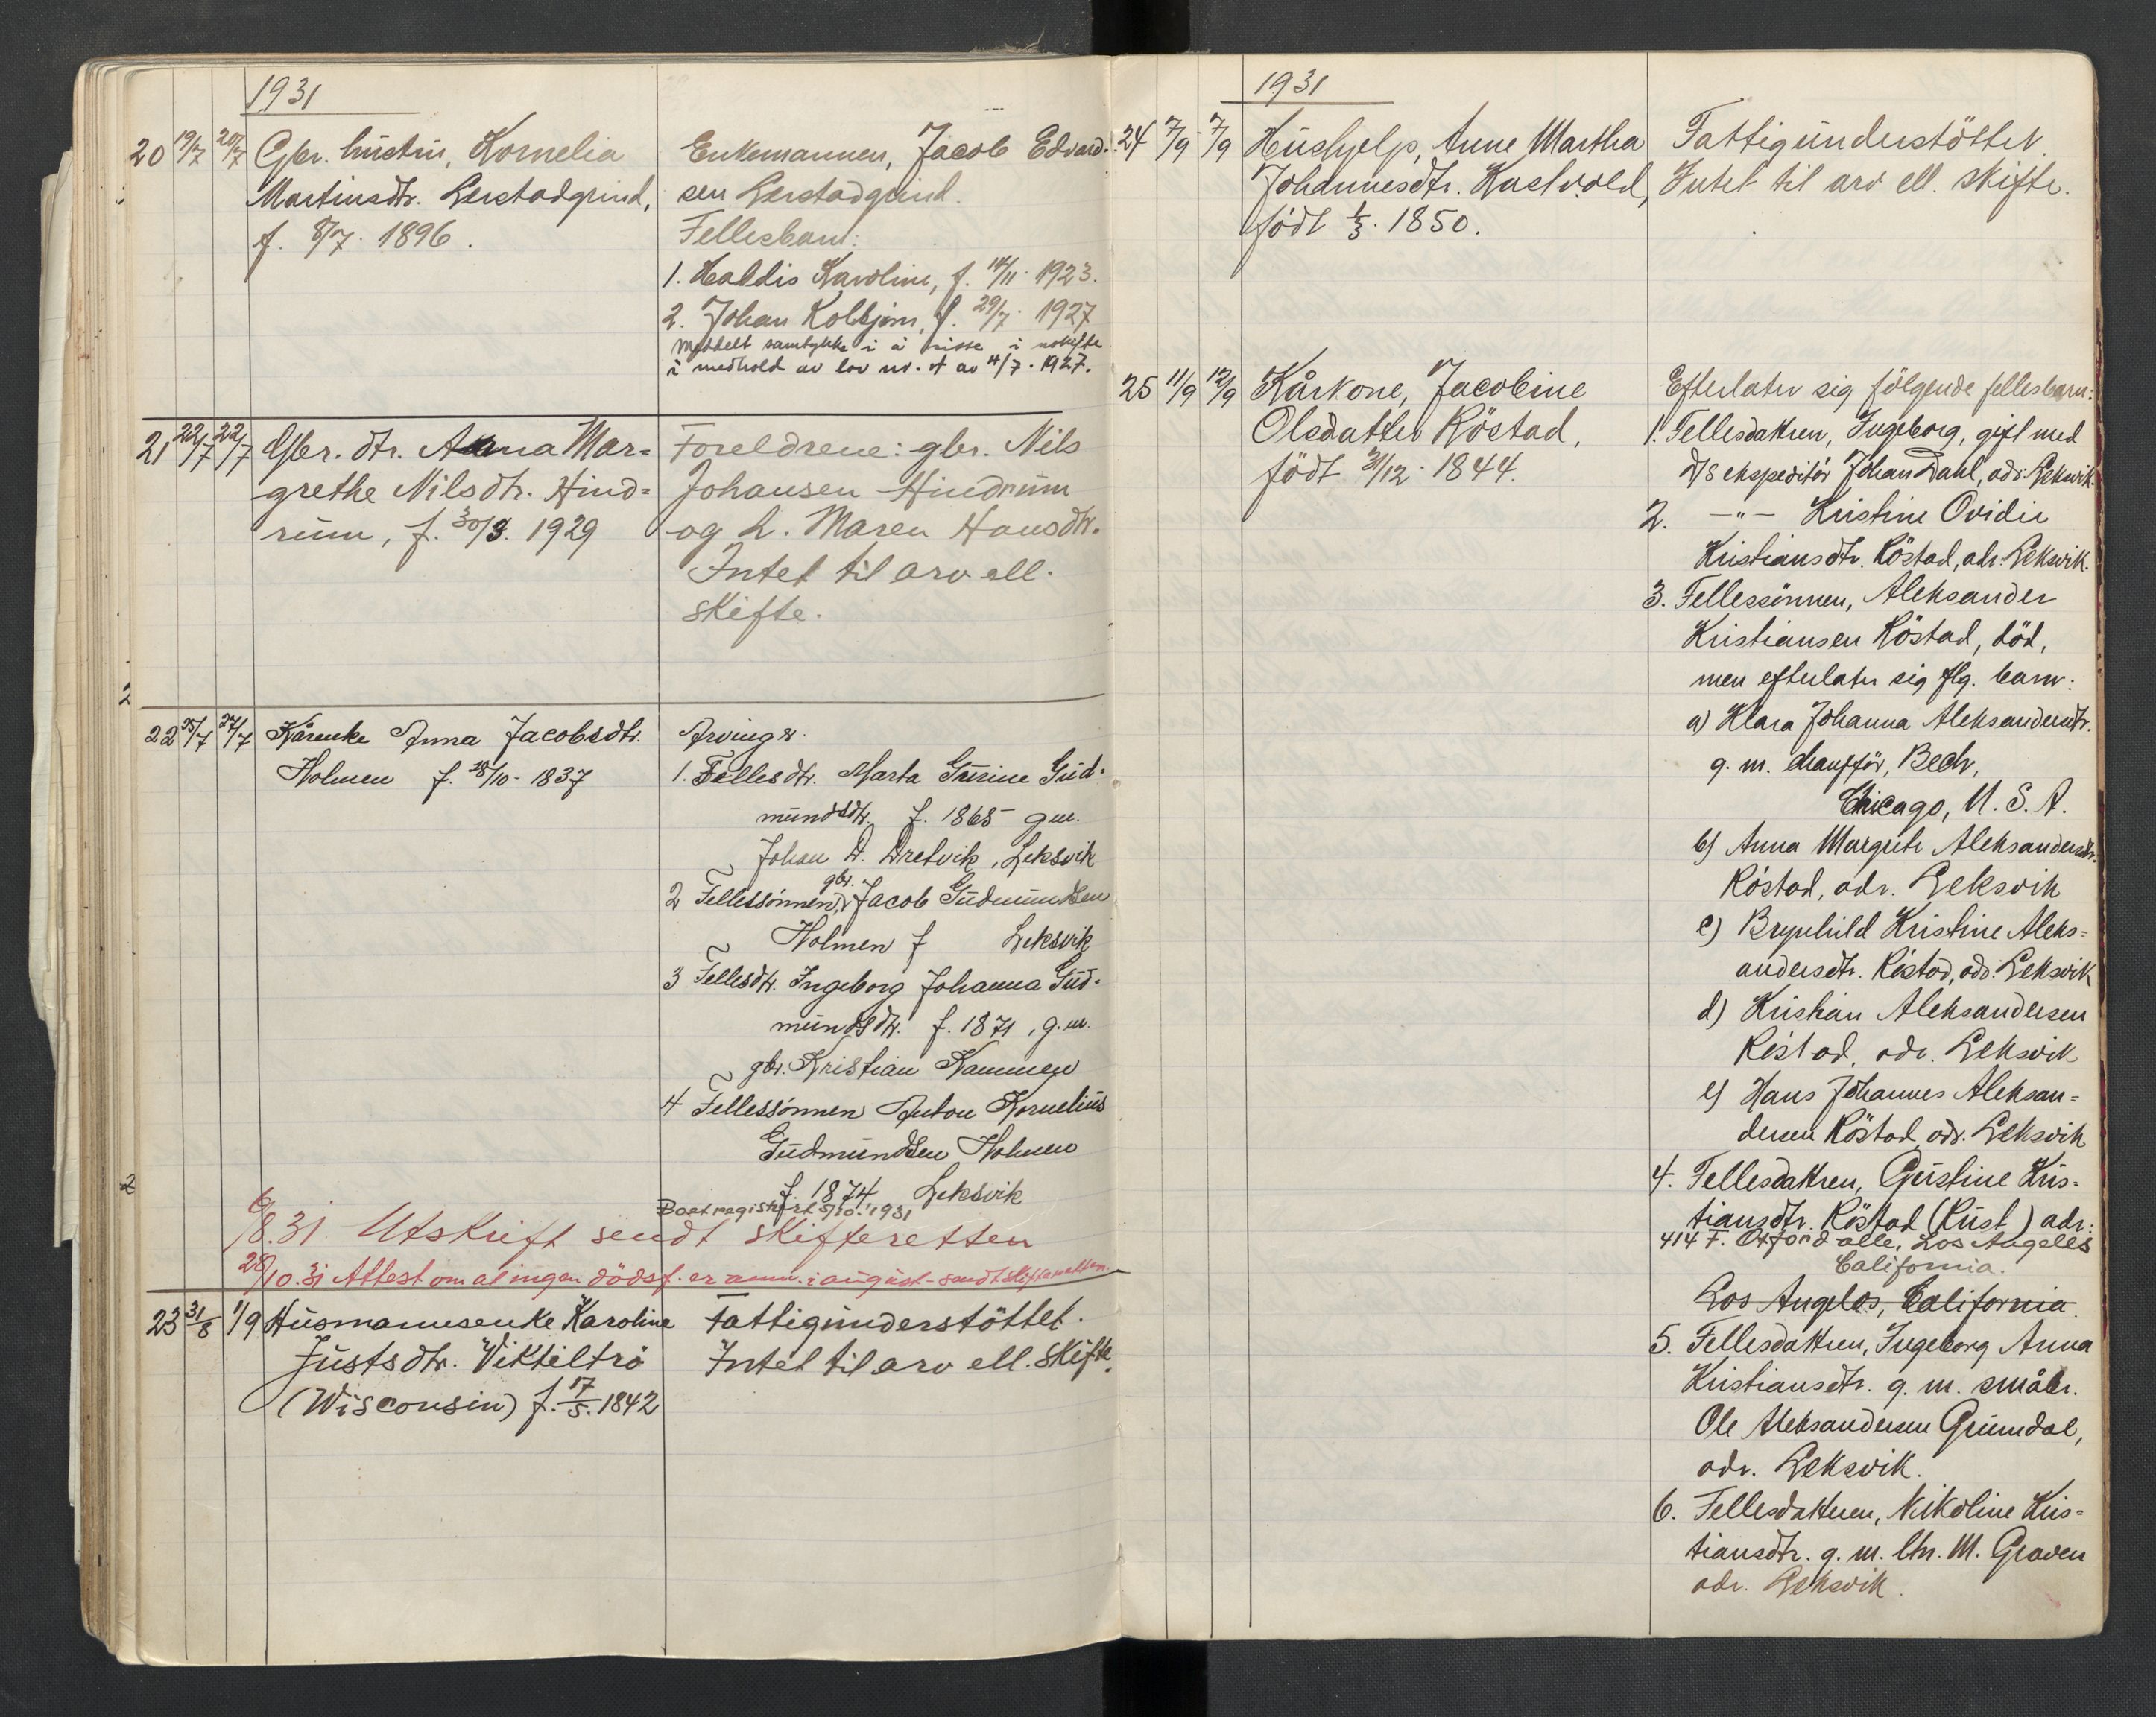 1931
20 19/7 20/7 Gbr. hustru, Kornelia
Martinsdtr. Lerstadgrind,
f. 8/7. 1896.
Enkemannen, Jacob Edvard-
sen Lerstadgrind.
Fellesbarn:
1. Haldis Karoline, f. 14/11. 1923.
2. Johan Kolbjørn, f. 29/7. 1927
Meddelt samtykke i å sitte i uskifte
i medhold av lov nr. 4 av 4/7. 1927.
21 22/7 22/7 Gbr. dtr. Anna Mar=
grethe Nilsdtr. Hind=
rum, f. 30/3. 1929
Foreldrene: gbr. Nils
Johansen Hindrum
og h. Maren Hansdtr.
Intet til arv ell.
skifte.
22 25/7 27/7 Kårenke Anna Jacobsdtr.
Holmen f. 28/10- 1837
Arvinger.
1. Fellesdtr. Marta Gurine Gud=
mundsdtr. f. 1865 gm.
Johan A. Dretvik, Leksvik
2 Fellessönnen, gbr. Jacob Gudmundsen
Holmen f Leksvik
3 Fellesdtr. Ingeborg Johanna Gud-
mundsdtr. f. 1871, g.m.
gbr. Kristian Kammen
4 Fellessönnen Anton Kornelius
Gudmundsen Holmen
f. 1874 Leksvik
Boet registrert 5/10. 1931
6/8.31. Utskrift sendt skifteretten
28/10.31 Attest om at ingen dödsf. er anm. i august - sendt skifteretten.
23 31/8 1/9 Husmannsenke Karoline
Justsdtr. Viktiltrö
(Wisconsin) f. 17/5. 1842
Fattigunderstöttet.
Intet til arv ell. skifte.
1931
24 7/9 7/9 Hushjelp, Anne Martha
Johannesdtr. Kastvold,
födt 1/3. 1850.
Fattigunderstöttet.
Intet til arv ell. skifte.
25 11/9 12/9 Kårkone, Jacobine
Olsdatter Röstad,
födt 31/12. 1844.
Efterlater sig fölgende fellesbarn:
1. Fellesdattren, Ingeborg, gift med
d/s ekspeditör Johan Dahl, adr. Leksvik.
2. -"- Kristine Ovidie
Kristiansdtr. Röstad, adr. Leksvik.
3. Fellessönnen, Aleksander
Kristiansen Röstad, död,
men efterlater sig flg. barn:
a) Klara Johanna Aleksandersdtr.
g. m. chaufför, Bech,
Chicago, U. S. A.
b) Anna Margrete Aleksandersdtr.
Röstad, adr. Leksvik
c) Brynhild Kristine Aleks=
andersdtr. Röstad, adr. Leksvik
d) Kristian Aleksandersen
Röstad, adr. Leksvik
e) Hans Johannes Aleksan=
dersen Röstad adr. Leksvik
4. Fellesdattren, Gustine Kris-
tiansdtr. Röstad (Rust) adr:
414 F. Oxford alle, Los Angeles
California.
Los Angelos, California
5. Fellesdattren, Ingeborg Anna
Kristiansdtr. g. m. småbr.
Ole Aleksandersen Grumdal,
adr. Leksvik.
6. Fellesdatteren, Nikoline Kris=
tiansdtr. g. m. M. Graven
adr. Leksvik.